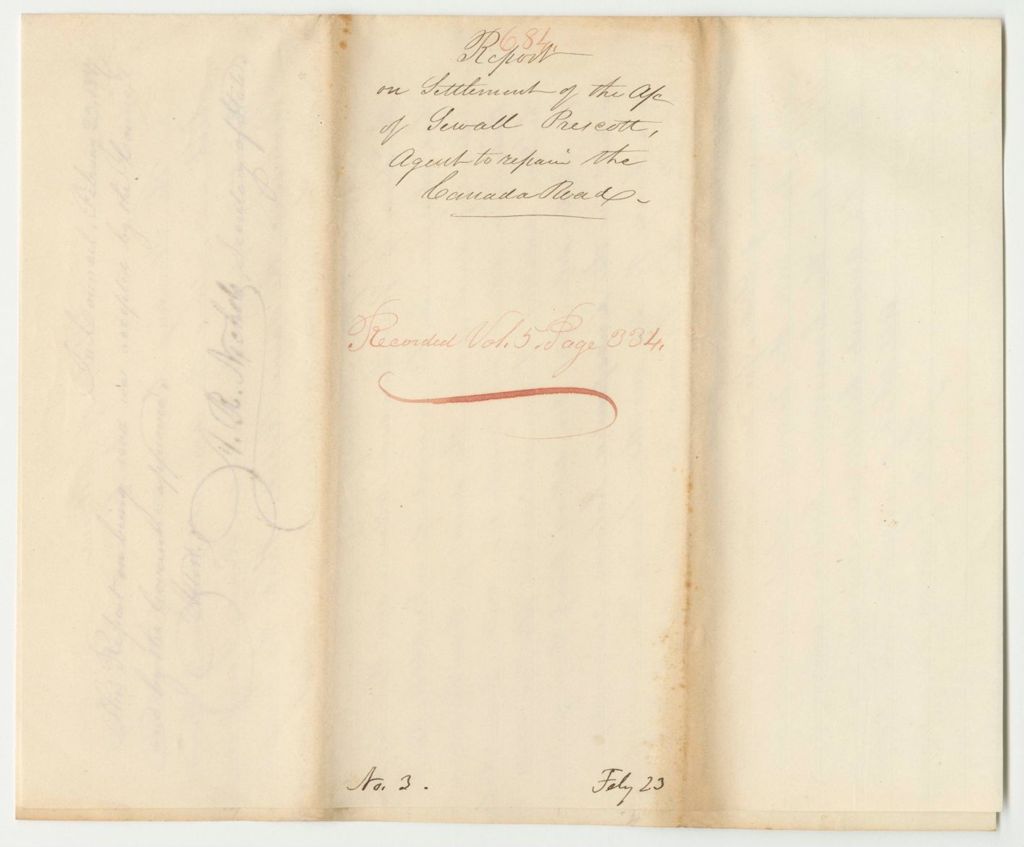 684
Report
on Settlement of the A/c
of Sewall Prescott,
Agent to repair the
Canada Road
Recorded Vol. 5. Page 334.
No. 3.
Feby 23
In Council, February 23
This Report on being read is accepted by the Council
and by the Governor approved.
Attest,
R. Nichols, Secretary of State.